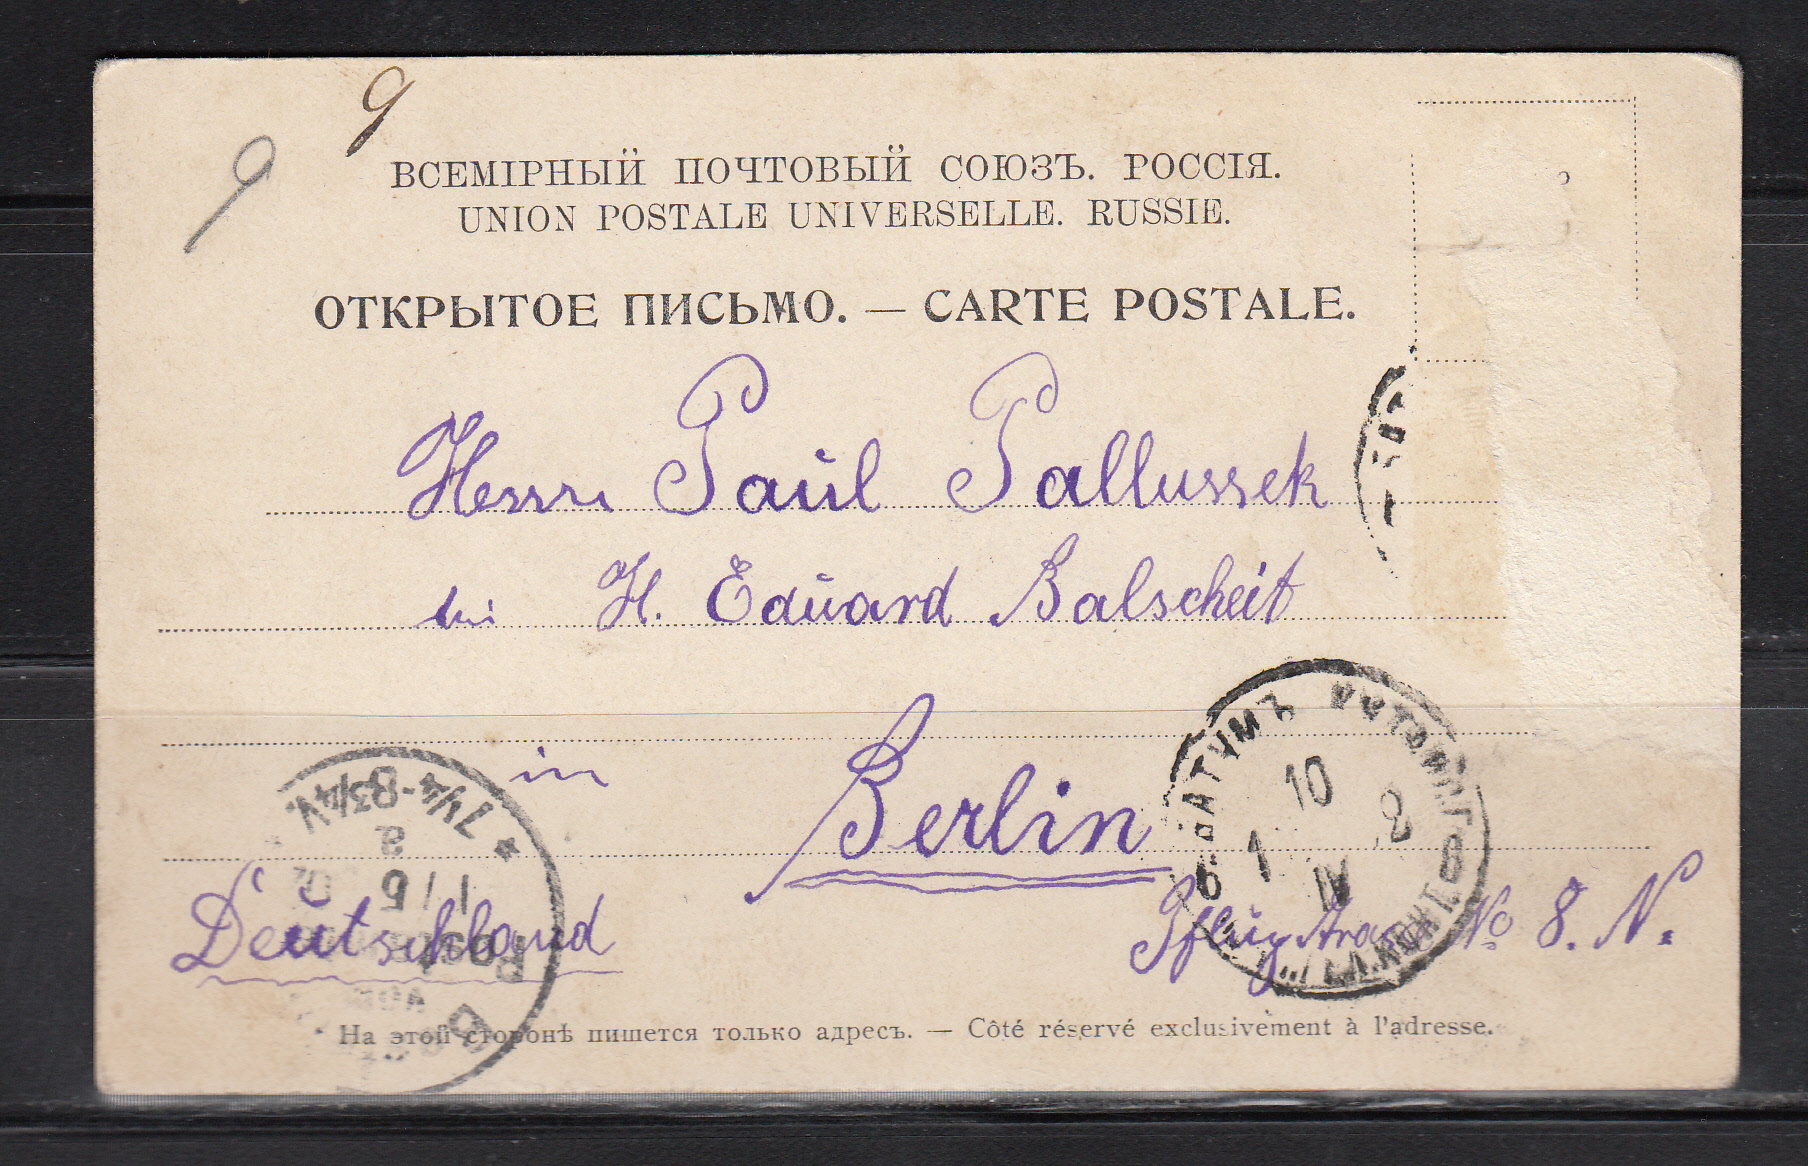 9
9
ВСЕМІРНЫЙ ПОЧТОВЫЙ СОЮЗЪ. РОССІЯ.
UNION POSTALE UNIVERSELLE. RUSSIE.
ОТКРЫТОЕ ПИСЬМО. — CARTE POSTALE.
Herrn Paul Pallussek
bei H. Eduard Balscheit
in Berlin
Deutschland
No 8. N.
БАТУМЪ
10 IV
7 1/4-8 3/4 V.
На этой сторонѣ пишется только адресъ. — Côté réservé exclusivement à l'adresse.